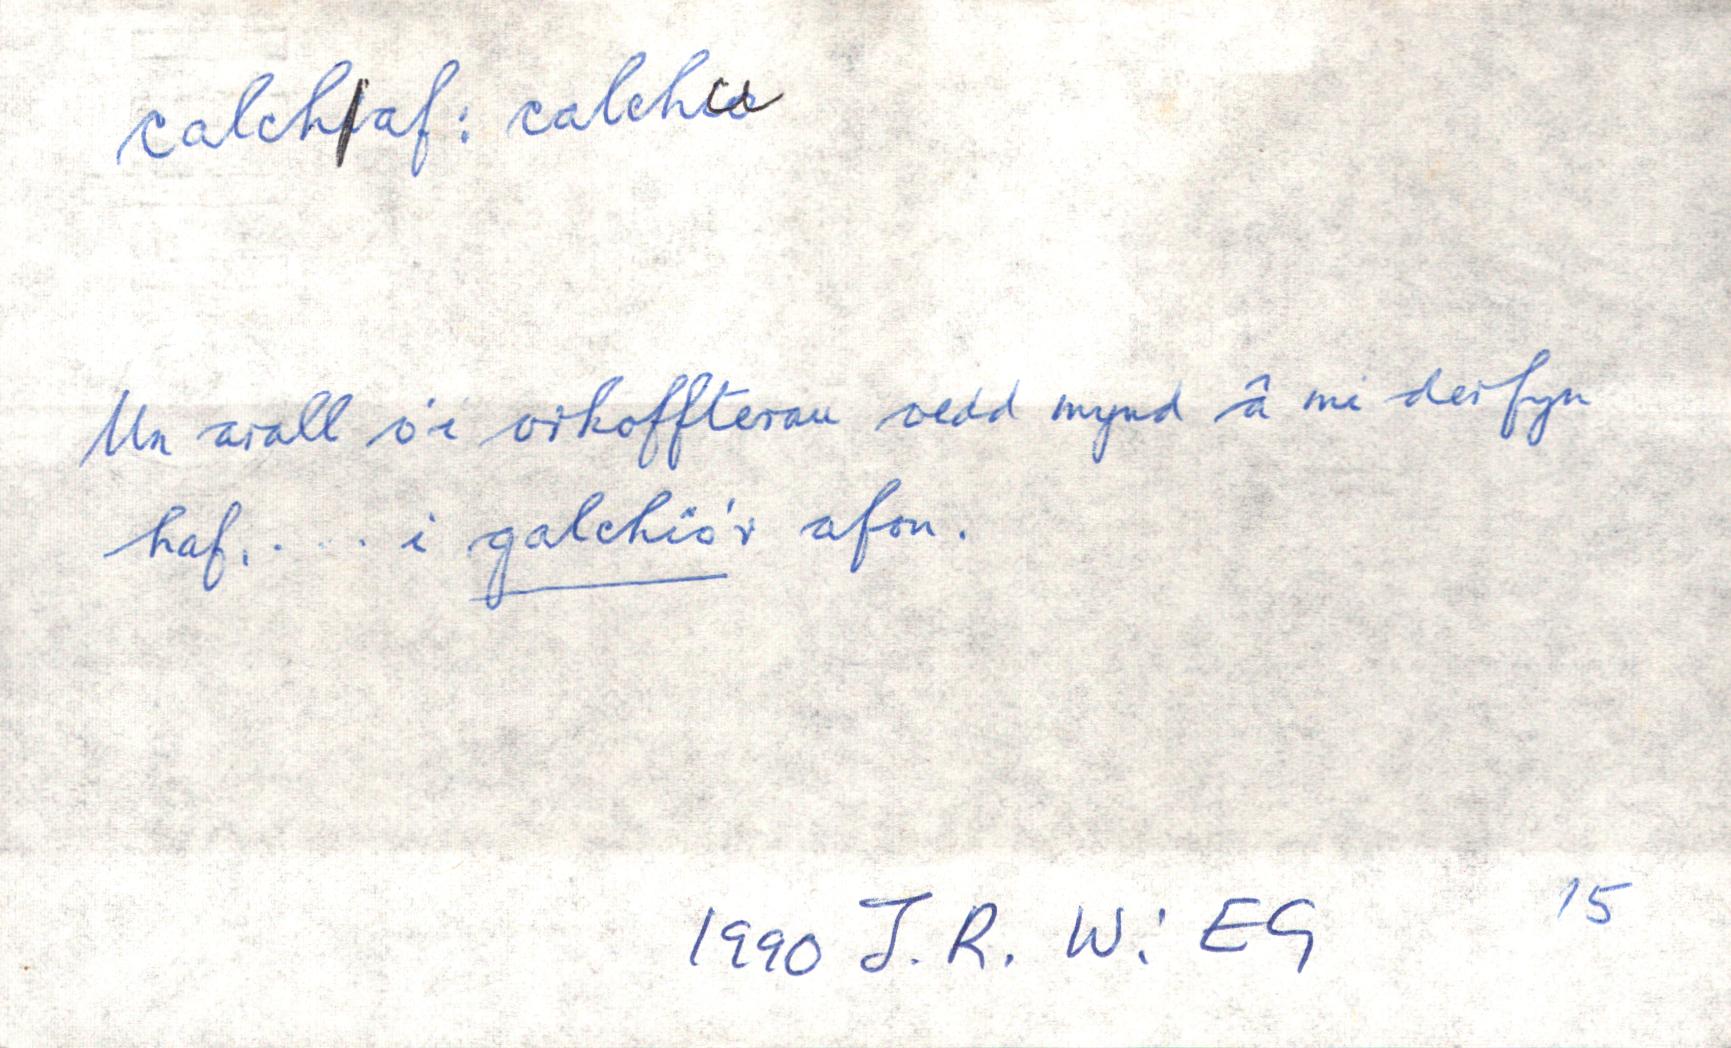 calch/af: calchu
Un arall o'i orhoffterau oedd mynd â mi derfyn
haf. . . . . i galchio'r afon.
1990 J.R. W: EG 15